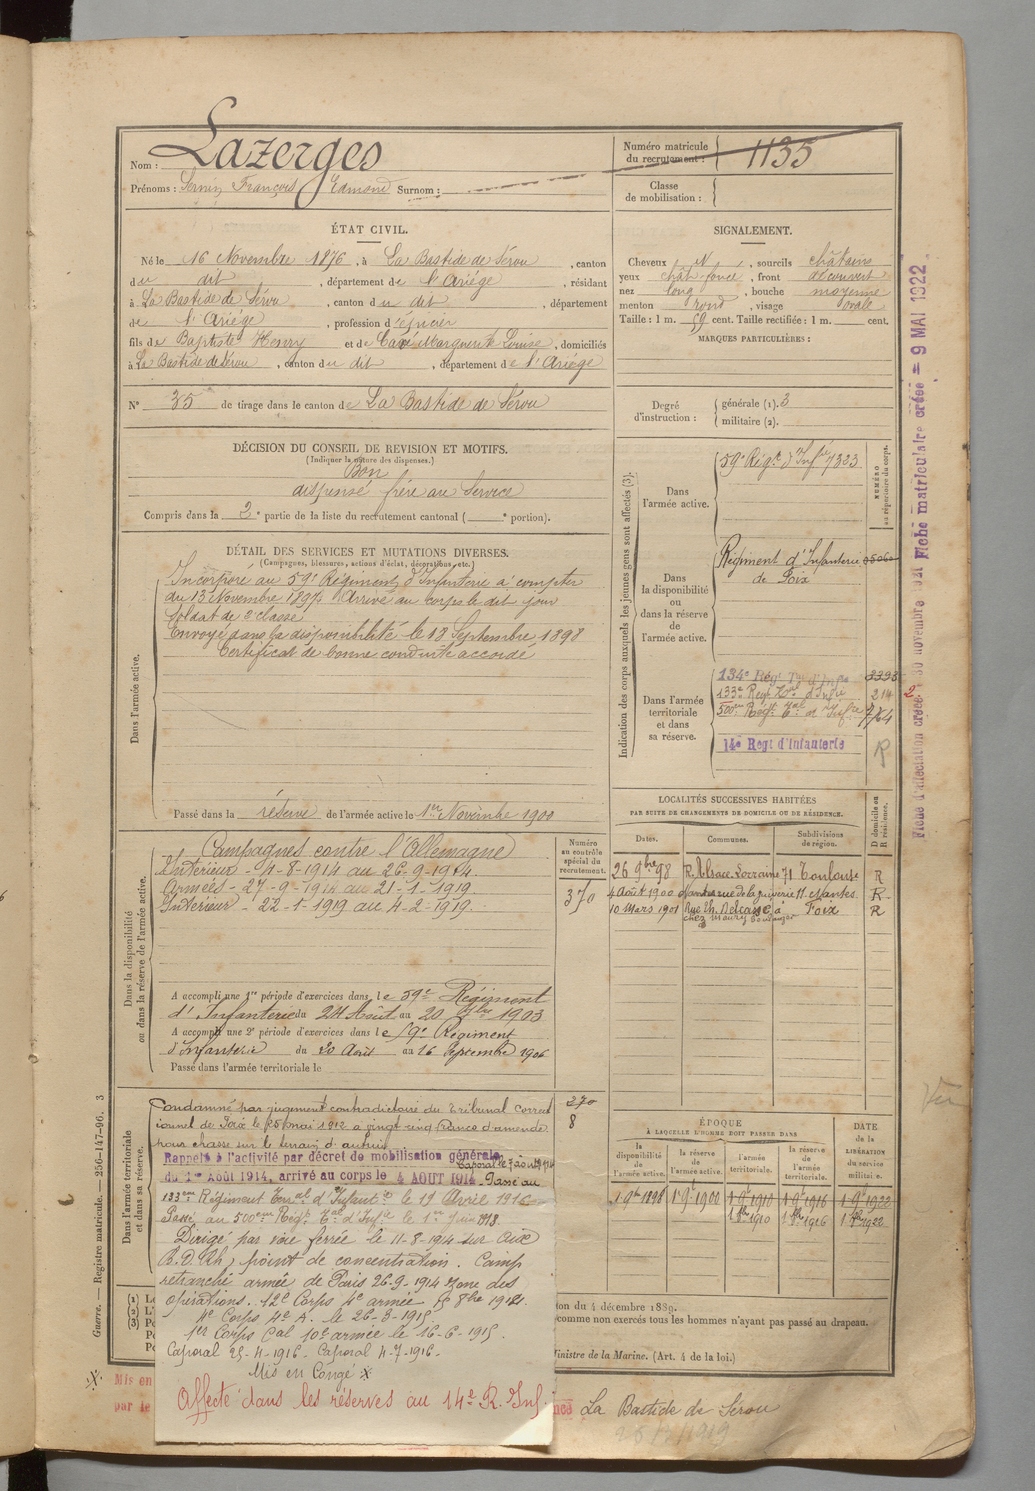 Nom : Lazerges
Prénoms : Sernin François Edmond Surnom :
Numéro matricule du recrutement : 1135
Classe de mobilisation :
ÉTAT CIVIL.
Né le 16 Novembre 1876, à La Bastide de Sérou, canton
du dit, département de l'Ariége, résidant
à La Bastide de Sérou, canton du dit, département
de l'Ariége, profession d'épicier
fils de Baptiste Henry et de Marguerite Louise, domiciliés
à La Bastide de Sérou, canton du dit, département de l'Ariége
N° 35 de tirage dans le canton de La Bastide de Sérou
SIGNALEMENT.
Cheveux N, sourcils châtains
yeux chât. foncé, front découvert
nez long, bouche moyenne
menton rond, visage ovale
Taille : 1 m. 59 cent. Taille rectifiée : 1 m. cent.
MARQUES PARTICULIÈRES :
Degré d'instruction : générale (1). 3
militaire (2).
DÉCISION DU CONSEIL DE REVISION ET MOTIFS.
(Indiquer la nature des dispenses.)
Bon
dispensé frère au Service
Compris dans la 2e partie de la liste du recrutement cantonal ( e portion).
DÉTAIL DES SERVICES ET MUTATIONS DIVERSES.
(Campagnes, blessures, actions d'éclat, décorations, etc.)
Dans l'armée active.
Incorporé au 59e Régiment d'Infanterie à compter
du 13 Novembre 1897 Arrivé au corps le dit jour
Soldat de 2e classe
Envoyé dans la disponibilité le 18 Septembre 1898
Certificat de bonne conduite accordé
Passé dans la réserve de l'armée active le 1er Novembre 1900
Indication des corps auxquels les jeunes gens sont affectés (3).
NUMÉRO au répertoire du corps.
Dans l'armée active.
59e Régt d'Infie 7323
Dans la disponibilité ou dans la réserve de l'armée active.
Régiment d'Infanterie 05060
de Foix
Dans l'armée territoriale et dans sa réserve.
134e Rég. Ter d'Infie 2393
133e Régt Tal d'Infie 214
500em Régt Tal d'Infie 7764
14e Regt d'Infanterie R
LOCALITÉS SUCCESSIVES HABITÉES
PAR SUITE DE CHANGEMENTS DE DOMICILE OU DE RÉSIDENCE.
Dates. Communes. Subdivisions de région. D domicile ou R résidence.
26 9bre 98 R. Alsace-Lorraine 71 Toulouse R
4 Août 1900 Nantes rue de la 11. Nantes. R
10 Mars 1901 Rue Th. Delcassé à Foix R
chez Maury boulanger
Dans la disponibilité ou dans la réserve de l'armée active.
Numéro au contrôle spécial du recrutement.
370
Campagnes contre l'Allemagne
Intérieur - 4-8-1914 au 26-9-1914.
Armées - 27-9-1914 au 21-1-1919.
Intérieur - 22-1-1919 au 4-2-1919.
A accompli une 1re période d'exercices dans le 59e Régiment
d'Infanterie du 24 Août au 20 7bre 1903
A accompli une 2e période d'exercices dans le 59e Régiment
d'Infanterie du 20 Août au 16 Septembre 1906
Passé dans l'armée territoriale le
Dans l'armée territoriale et dans sa réserve.
270
8
Condamné par jugement contradictoire du Tribunal correc
tionnel de Foix le 25 mai 1912 à vingt cinq francs d'amende
pour chasse sur le terrain d'autrui
Rappelé à l'activité par décret de mobilisation générale
Caporal le 7 août 1914
du 1er Août 1914, arrivé au corps le 4 AOUT 1914 Passé au
133em Régiment Terral d'Infantie le 19 Avril 1916
Passé au 500em Régt Tal d'Infie le 1er Juin 1918.
Dirigé par voie ferrée le 11-8-1914 sur Aix
B.D.Rh, point de concentration. Camp
retranché armée de Paris 26-9-1914 zone des
opérations. 12e Corps 4e armée 8bre 1914.
4e Corps 4e A. le 26-3-1915
1er Corps Cal 10e armée le 16-6-1915.
Caporal 25-4-1916. Caporal 4-7-1916.
Mis en Congé X
Affecté dans les réserves au 14e R. Inf.
ÉPOQUE
À LAQUELLE L'HOMME DOIT PASSER DANS
la disponibilité de l'armée active. la réserve de l'armée active. l'armée territoriale. la réserve de l'armée territoriale.
DATE de la LIBÉRATION du service militaire.
1 9bre 1898 1 9e 1900 1 9e 1910 1 9e 1916 1 9e 1922
1 8bre 1910 1 8bre 1916 1 8bre 1922
ion du 4 décembre 1889.
comme non exercés tous les hommes n'ayant pas passé au drapeau.
Ministre de la Marine. (Art. 4 de la loi.)
X Mis en
par le
La Bastide de Sérou
1919
Guerre. — Registre matricule. — 256-147-96. 3
Fiche d'affectation créée 30 novembre 1921 Fiche matriculaire créée = 9 MAI 1922